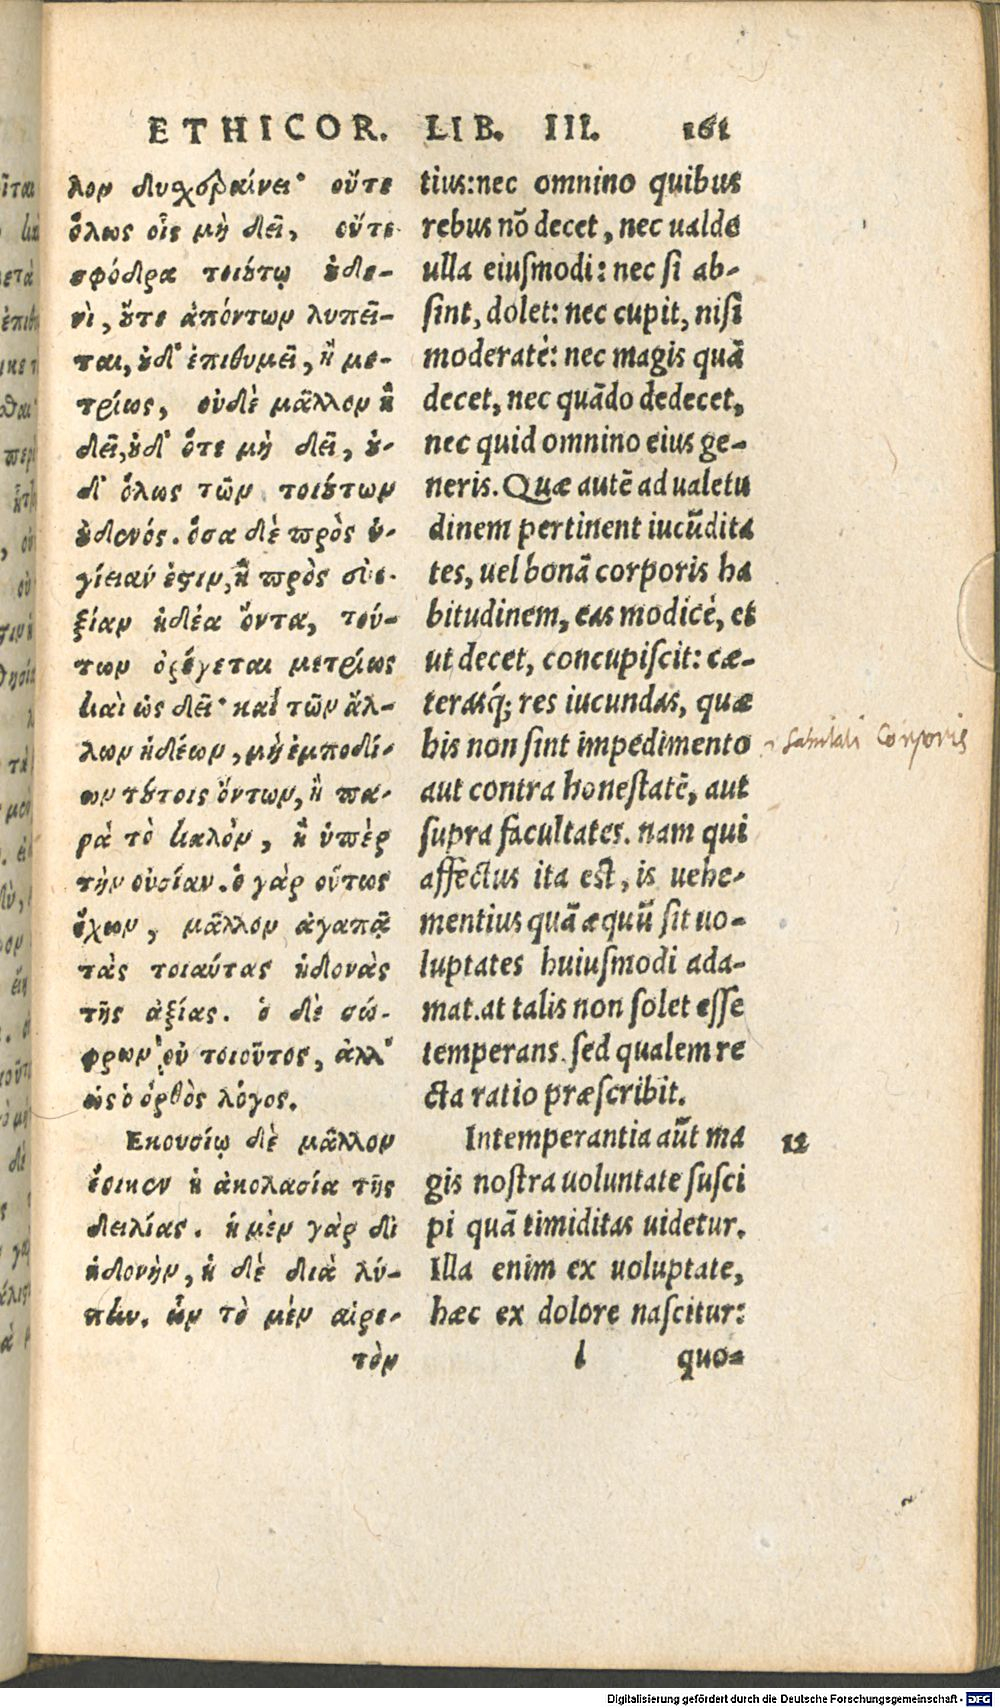 ETHICOR. LIB. III. 161
λον δυσχεραίνει· οὔτε
ὅλως οἷς μὴ δεῖ, οὔτε
σφόδρα τοιȣ́τῳ ȣ̓δε-
νὶ, ȣ̓́τε ἀπόντων λυπεῖ-
ται, ȣ̓δ' ἐπιθυμεῖ, ἢ με-
τρίως, οὐδὲ μᾶλλον ἢ
δεῖ, ȣ̓δ' ὅτε μὴ δεῖ, ȣ̓-
δ' ὅλως τῶν τοιȣ́των
ȣ̓δενός. ὅσα δὲ πρὸς ὑ-
γίειαν ἐστιν, ἢ πρὸς εὐε-
ξίαν ἡδέα ὄντα, τού-
των ὀρέγεται μετρίως
καὶ ὡς δεῖ· καὶ τῶν ἄλ-
λων ἡδέων, μὴ ἐμποδί-
ων τȣ́τοις ὄντων, ἢ πα-
ρὰ τὸ καλὸν, ἢ ὑπὲρ
τὴν οὐσίαν. ὁ γὰρ οὕτως
ἔχων, μᾶλλον ἀγαπᾷ
τὰς τοιαύτας ἡδονὰς
τῆς ἀξίας. ὁ δὲ σώ-
φρων οὐ τοιοῦτος, ἀλλ'
ὡς ὁ ὀρθὸς λόγος.
Εκουσίῳ δὲ μᾶλλον
ἔοικεν ἡ ἀκολασία τῆς
δειλίας. ἡ μὲν γὰρ δι'
ἡδονὴν, ἡ δὲ διὰ λύ-
πην. ὧν τὸ μὲν αἱρε-
τὸν
tius: nec omnino quibus
rebus nō decet, nec ualde
ulla eiusmodi: nec si ab-
sint, dolet: nec cupit, nisi
moderatè: nec magis quā
decet, nec quādo dedecet,
nec quid omnino eius ge-
neris. Quæ autē ad ualetu
dinem pertinent iucūdita
tes, uel bonā corporis ha
bitudinem, eas modicè, et
ut decet, concupiscit: cæ-
terasq́; res iucundas, quæ
bis non sint impedimento
aut contra honestatē, aut
supra facultates. nam qui
affectus ita est, is uehe-
mentius quā æquū sit uo-
luptates huiusmodi ada-
mat. at talis non solet esse
temperans. sed qualem re
cta ratio præscribit.
Intemperantia aūt ma
gis nostra uoluntate susci
pi quā timiditas uidetur.
Illa enim ex uoluptate,
hæc ex dolore nascitur:
l quo-
Corporis
12
Digitalisierung gefördert durch die Deutsche Forschungsgemeinschaft - DFG